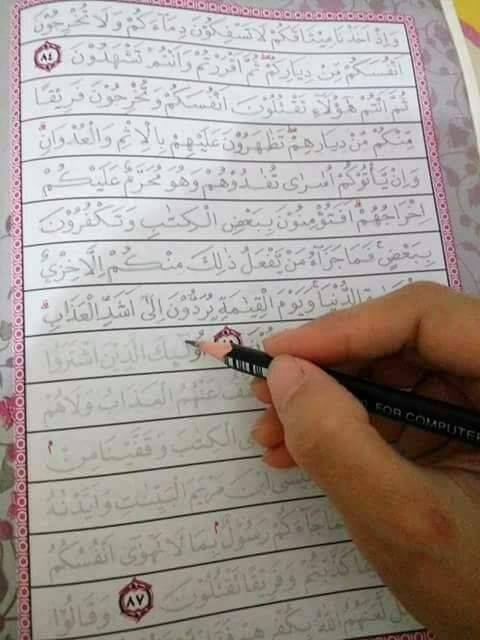 وَاِذْ اَخَذْنَا مِيْثَاقَكُمْ لَا تَسْفِكُوْنَ دِمَاۤءَكُمْ وَلَا تُخْرِجُوْنَ
اَنْفُسَكُمْ مِّنْ دِيَارِكُمْ ۖ ثُمَّ اَقْرَرْتُمْ وَاَنْتُمْ تَشْهَدُوْنَ ٨٤
ثُمَّ اَنْتُمْ هٰٓؤُلَاۤءِ تَقْتُلُوْنَ اَنْفُسَكُمْ وَتُخْرِجُوْنَ فَرِيْقًا
مِّنْكُمْ مِّنْ دِيَارِهِمْۖ تَظٰهَرُوْنَ عَلَيْهِمْ بِالْاِثْمِ وَالْعُدْوَانِۗ
وَاِنْ يَّأْتُوْكُمْ اُسٰرٰى تُفٰدُوْهُمْ وَهُوَ مُحَرَّمٌ عَلَيْكُمْ
اِخْرَاجُهُمْۗ اَفَتُؤْمِنُوْنَ بِبَعْضِ الْكِتٰبِ وَتَكْفُرُوْنَ
بِبَعْضٍۚ فَمَا جَزَاۤءُ مَنْ يَّفْعَلُ ذٰلِكَ مِنْكُمْ اِلَّا خِزْيٌ
الدُّنْيَاۚ وَيَوْمَ الْقِيٰمَةِ يُرَدُّوْنَ اِلٰٓى اَشَدِّ الْعَذَابِۗ
اُولٰۤىِٕكَ الَّذِيْنَ اشْتَرَوُا
عَنْهُمُ الْعَذَابُ وَلَا هُمْ
الْكِتٰبَ وَقَفَّيْنَا مِنْۢ
ابْنَ مَرْيَمَ الْبَيِّنٰتِ وَاَيَّدْنٰهُ
جَاۤءَكُمْ رَسُوْلٌۢ بِمَا لَا تَهْوٰٓى اَنْفُسُكُمُ
كَذَّبْتُمْ وَفَرِيْقًا تَقْتُلُوْنَ ٨٧ وَقَالُوْا
لَّعَنَهُمُ اللّٰهُ بِكُفْرِهِمْ
FOR COMPUTER